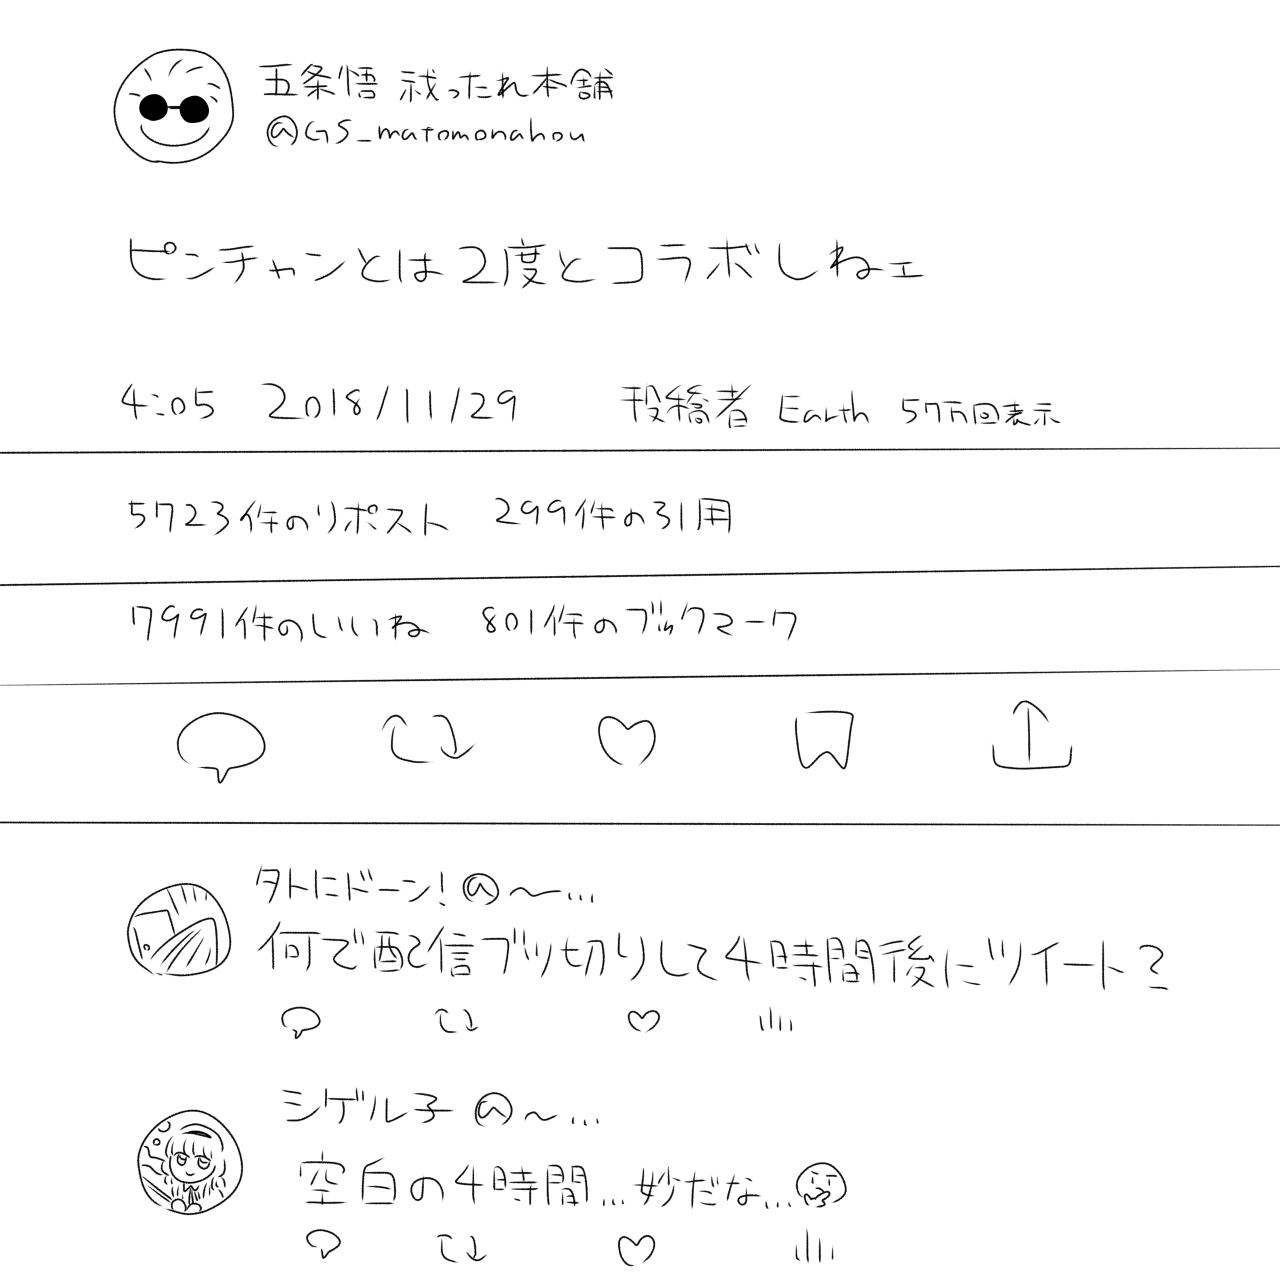 五条悟 祓ったれ本舗
@GS_matomonahou
ピンチャンとは2度とコラボしねェ
4:05 2018/11/29 投稿者 Earth 57万回表示
5723件のリポスト 299件の引用
7991件のいいね 801件のブックマーク
タトにドーン!@〜...
何で配信ブツ切りして4時間後にツイート?
シゲル子 @〜...
空白の4時間...妙だな...🤔